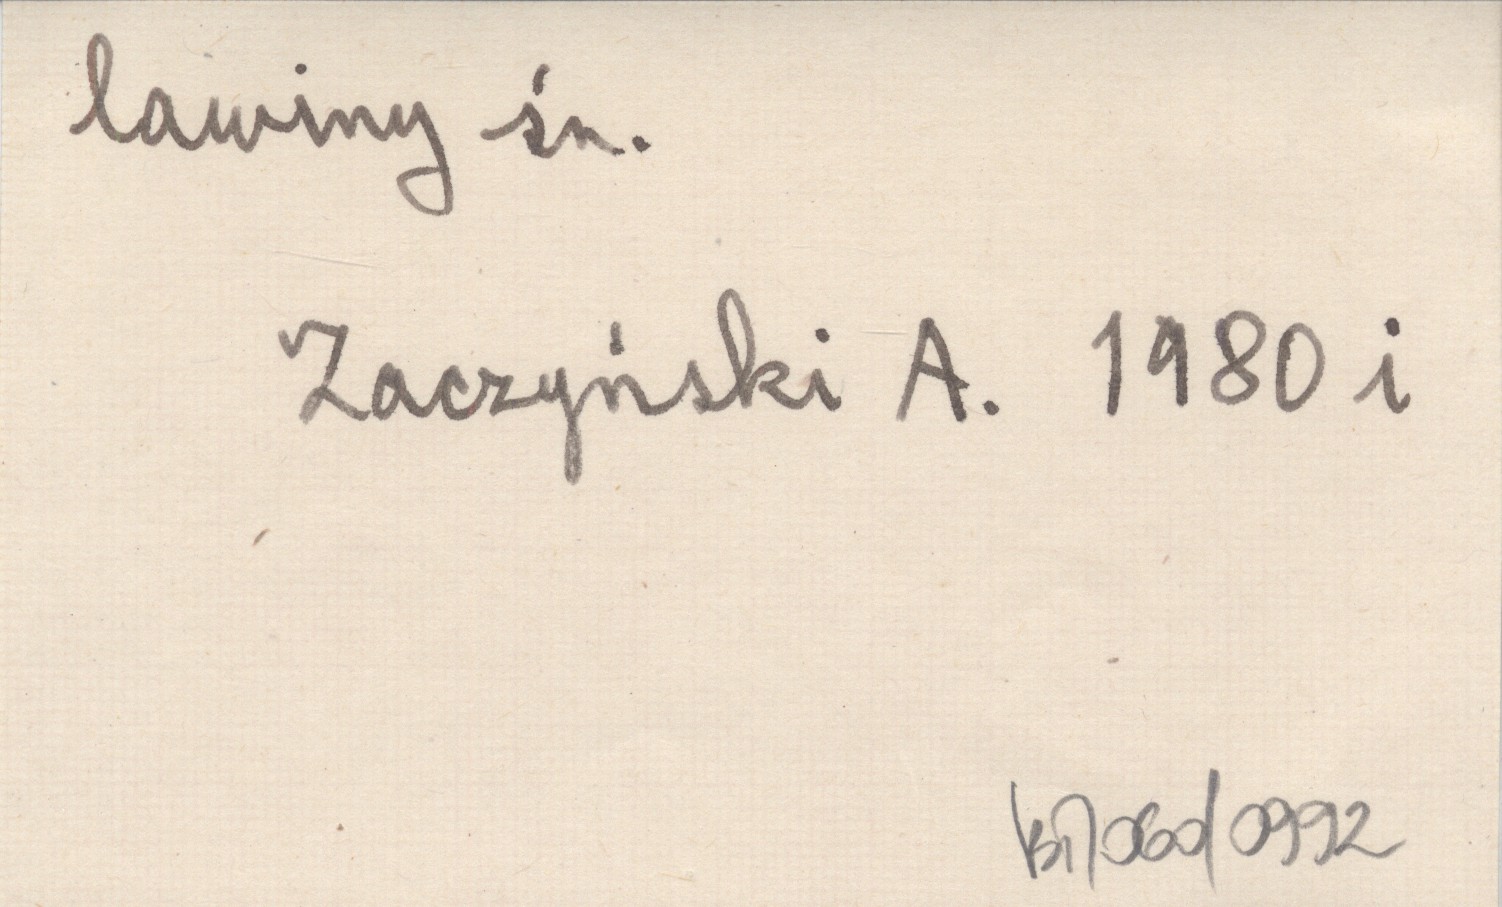 lawiny śn.
Zaczyński A. 1980 i
/060/0992